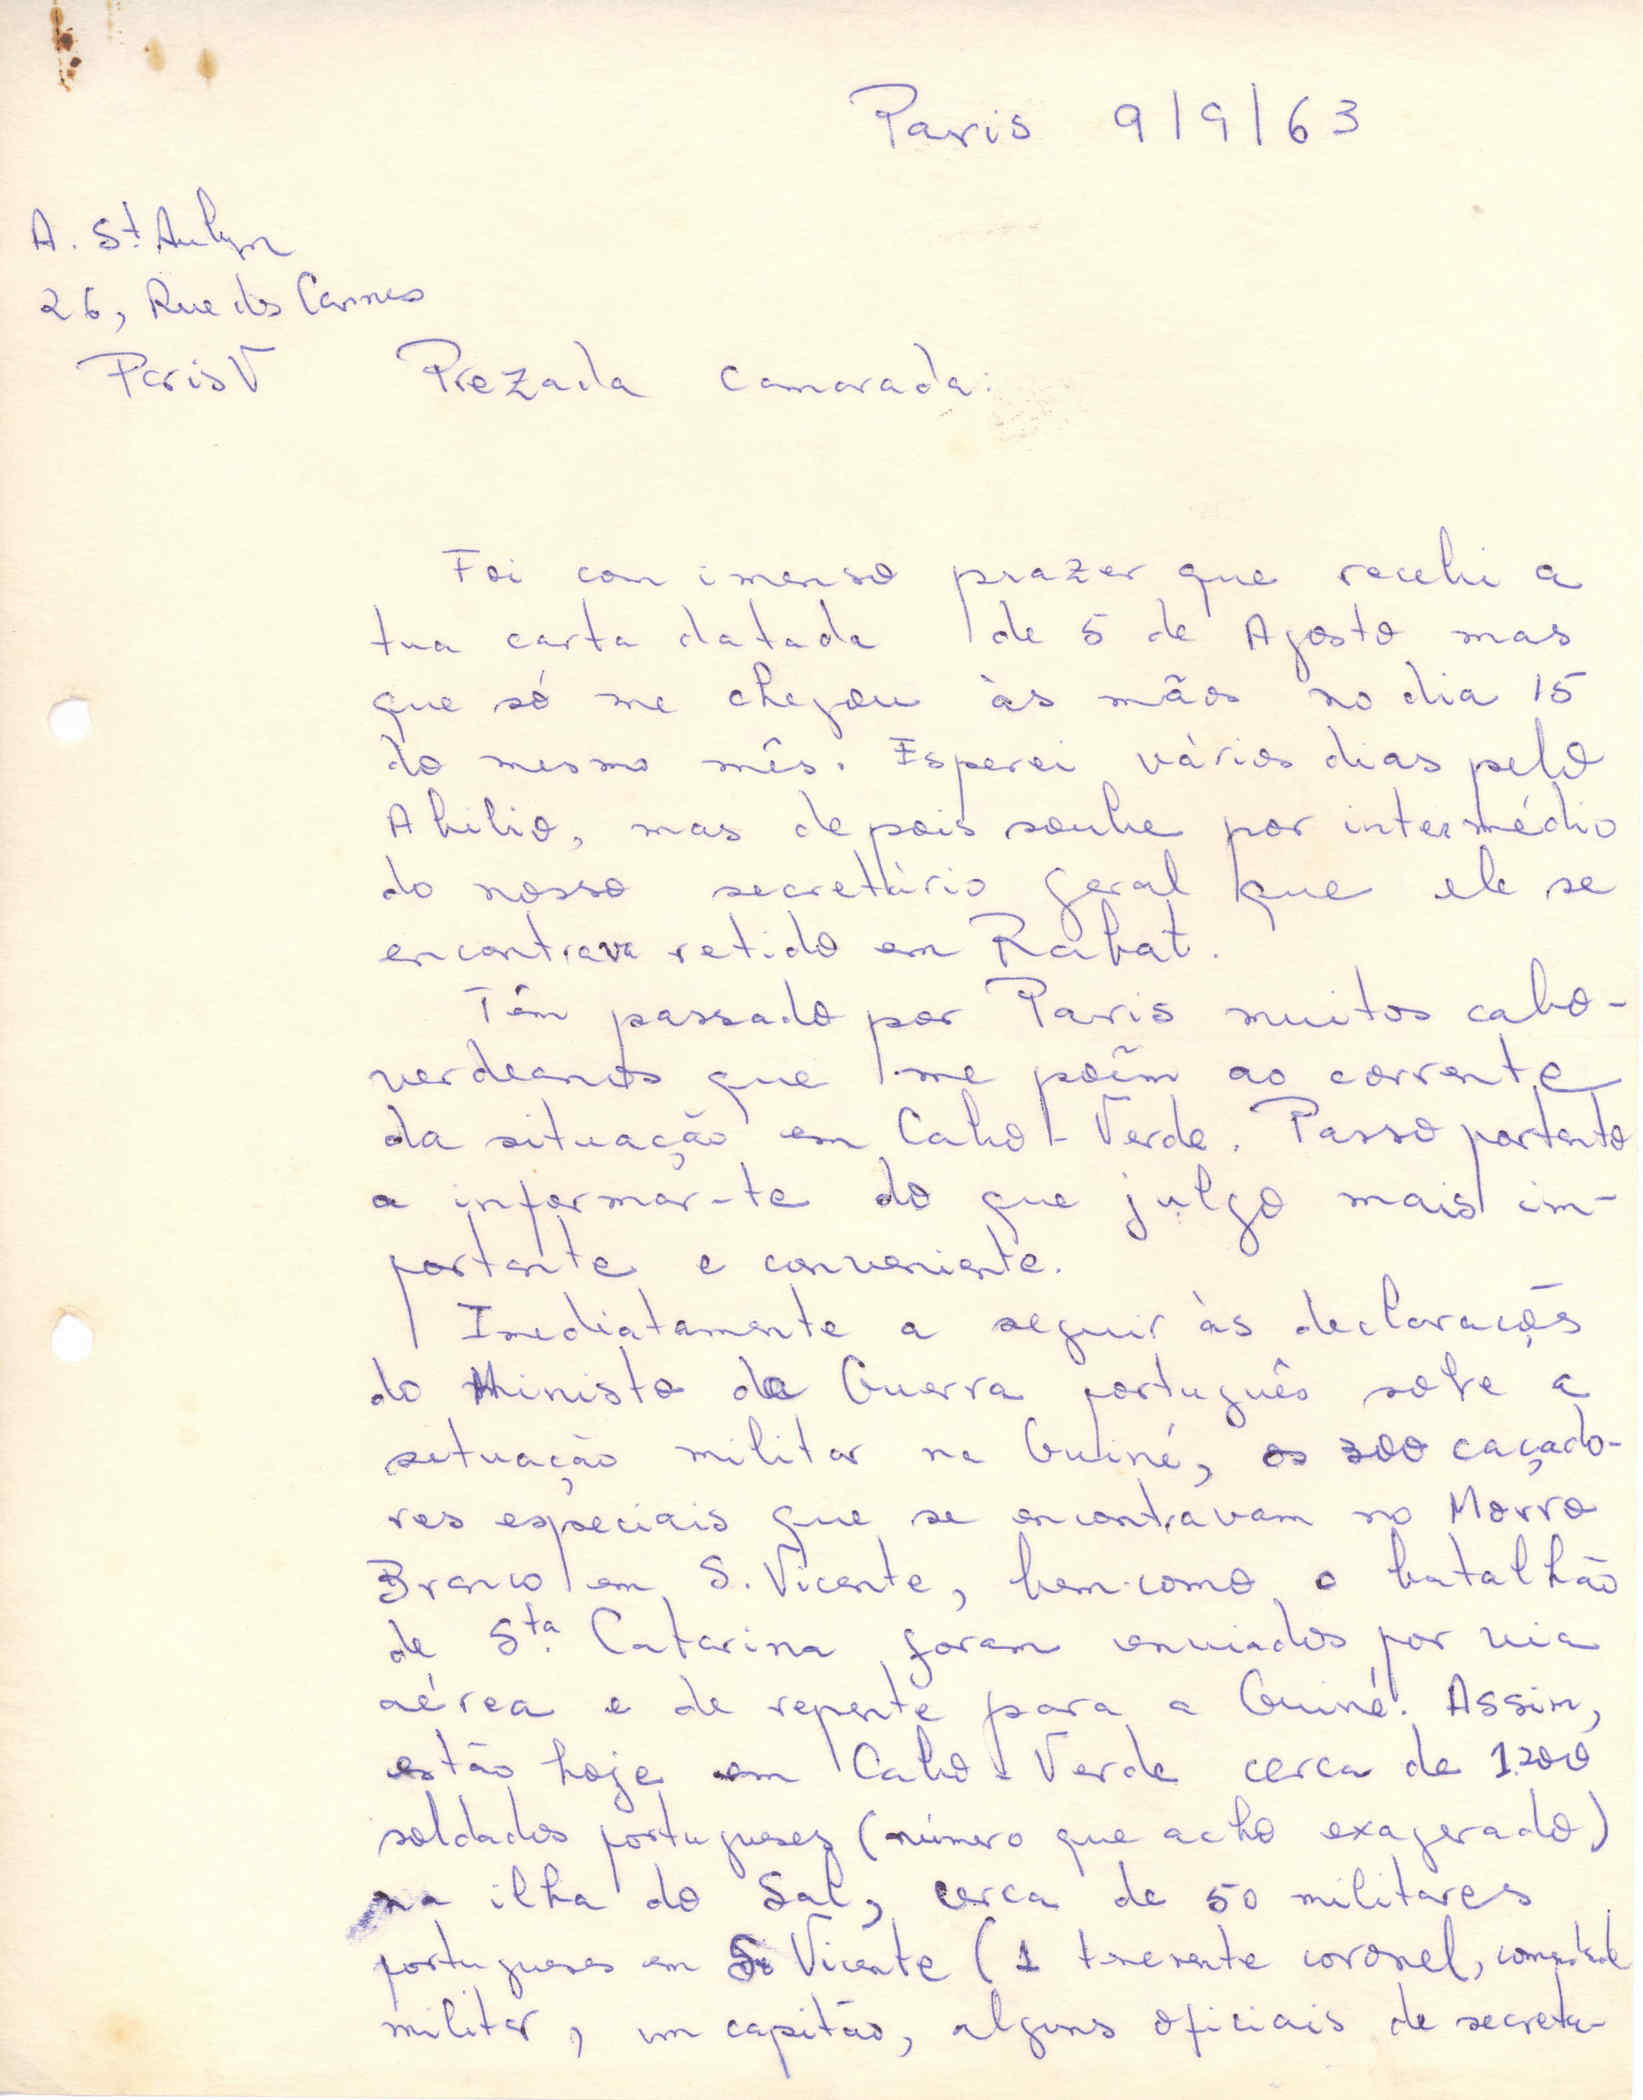 Paris 9/9/63
A. St. Aubyn
26, Rue des Carmes
Paris V
Prezada camarada:
Foi com imenso prazer que recebi a
tua carta datada de 5 de Agosto mas
que só me chegou às mãos no dia 15
do mesmo mês. Esperei vários dias pelo
Abilio, mas depois soube por intermédio
do nosso secretário geral que ele se
encontrava retido em Rabat.
Têm passado por Paris muitos cabo-
verdeanos que me põim ao corrente
da situação em Cabo-Verde. Passo portanto
a informar-te do que julgo mais im-
portante e conveniente.
Imediatamente a seguir às declarações
do Ministo da Guerra português sobre a
situação militar na Guiné, os 300 caçado-
res especiais que se encontravam no Morro
Branco em S. Vicente, bem como o batalhão
de Sta. Catarina foram enviados por via
aérea e de repente para a Guiné. Assim,
estão hoje em Cabo-Verde cerca de 1200
soldados portugueses (número que acho exagerado)
na ilha do Sal, cerca de 50 militares
portugueses em S. Vicente (1 tenente coronel,
militar, um capitão, alguns oficiais de secreta-